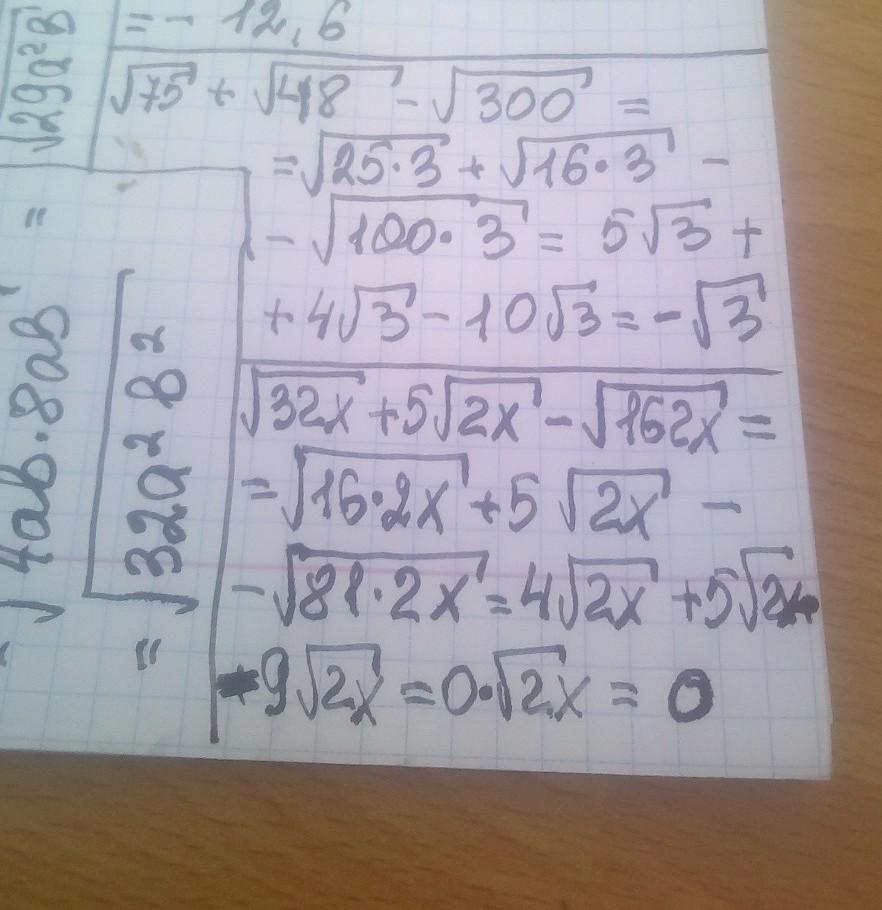 = - 12,6
√75 + √48 - √300 =
= √25·3 + √16·3 -
- √100·3 = 5√3 +
+ 4√3 - 10√3 = -√3
√32x + 5√2x - √162x =
= √16·2x + 5√2x -
- √81·2x = 4√2x + 5√2x
- 9√2x = 0·√2x = 0
√29a²b
√4ab·8ab =
= √32a²b²